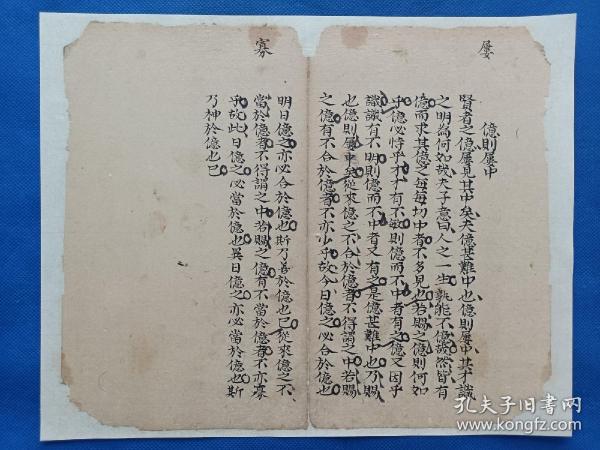 屡
億則屡中
賢者之億屡見其中矣夫億甚難中也億則屡中其才識
之明為何如哉夫子意曰人之一生孰能不億哉然皆有
億而求其億之每每切中者不多見也若賜之億則何如
乎億必恃乎才才有不敏則億而不中者有之億又因乎
識識有不明則億而不中者又有之是億甚難中也乃賜
也億則屡中矣從來億之不合於億者不得謂之中若賜
之億有不合於億者不亦少乎故今日億之必合於億也
寡
明日億之亦必合於億也斯乃善於億也已從來億之不
當於億者不得謂之中若賜之億有不當於億者不亦寡
乎故此日億之必當於億也異日億之亦必當於億也斯
乃神於億也已
孔夫子旧书网
www.kongfz.com